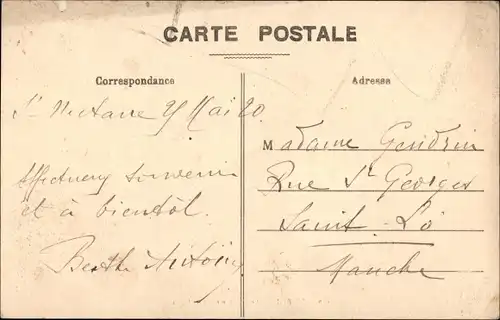 CARTE POSTALE
Correspondance
Adresse
St Nectaire 29 Mai 20.
Affectueux souvenir
et à bientôt.
Berthe Antoine
Madame Gendrin
Rue St Georges
Saint-Lô
Manche